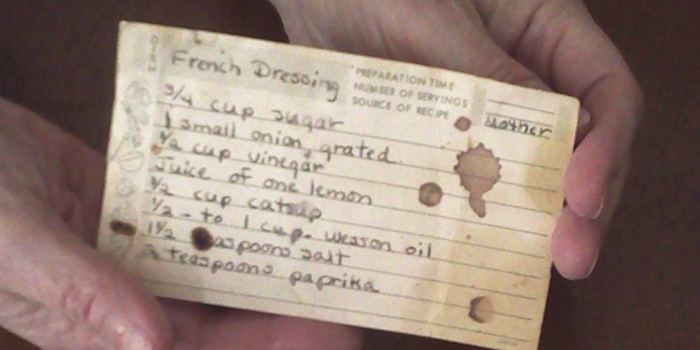 DISH
French Dressing
PREPARATION TIME
NUMBER OF SERVINGS
SOURCE OF RECIPE Mother
3/4 cup sugar
1 small onion, grated
1/2 cup vinegar
Juice of one lemon
1/2 cup catsup
1/2 - to 1 cup - Wesson oil
1 1/2 aspoons salt
2 teaspoons paprika